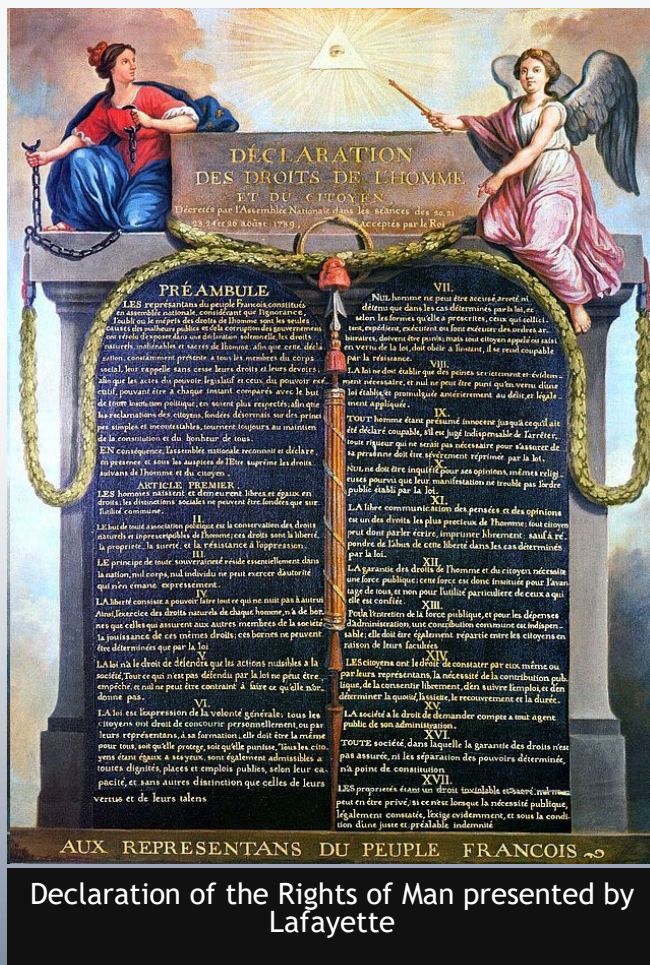 DÉCLARATION
DES DROITS DE L'HOMME
ET DU CITOYEN,
Décretés par l'Assemblée Nationale dans les séances des 20, 21
23, 24 et 26 août 1789, acceptés par le Roi
PRÉAMBULE
LES représantans du peuple François, constitués
en assemblée nationale, considérant que l'ignorance,
l'oubli ou le mépris des droits de l'homme sont les seules
causes des malheurs publics et de la corruption des gouvernemens
ont résolu d'exposer dans une déclaration solemnelle, les droits
naturels, inaliénables et sacrés de l'homme; afin que cette décla
ration, constamment présente a tous les membres du corps
social, leur rappelle sans cesse leurs droits et leurs devoirs;
afin que les actes du pouvoir législatif et ceux du pouvoir exé
cutif, pouvant être a chaque instant comparés avec le but
de toute institution politique, en soient plus respectés; afin que
les reclamations des citoyens, fondées désormais sur des prince
pes simples et incontestables, tournent toujours au maintien
de la constitution et du bonheur de tous.
EN conséquence, l'assemblée nationale reconnoit et déclare,
en presence et sous les auspices de l'Etre suprême les droits
suivans de l'homme et du citoyen.
ARTICLE PREMIER.
LES hommes naissent et demeurent libres et égaux en
droits; les distinctions sociales ne peuvent être fondées que sur
l'utilité commune.
II.
LE but de toute association politique est la conservation des droits
naturels et imprescriptibles de l'homme; ces droits sont la liberté,
la propriété, la sureté, et la résistance à l'oppression.
III.
LE principe de toute souveraineté réside essentiellement dans
la nation, nul corps, nul individu ne peut exercer d'autorité
qui n'en émane expressement.
IV.
LA liberté consiste a pouvoir faire tout ce qui ne nuit pas à autrui
Ainsi, l'exercice des droits naturels de chaque homme, n'a de bor
nes que celles qui assurent aux autres membres de la société
la jouissance de ces mêmes droits; ces bornes ne peuvent
être déterminées que par la loi
V.
LA loi n'a le droit de défendre que les actions nuisibles a la
société. Tout ce qui n'est pas défendu par la loi ne peut être
empêché, et nul ne peut être contraint à faire ce qu'elle n'or
donne pas.
VI.
LA loi est l'expression de la volonté générale; tous les
citoyens ont droit de concourir personnellement, ou par
leurs représentans, à sa formation; elle doit être la même
pour tous, soit qu'elle protege, soit qu'elle punisse, Tous les cito
yens étant égaux a ses yeux, sont également admissibles a
toutes dignités, places et emplois publics, selon leur ca
pacité, et sans autres distinction que celles de leurs
vertus et de leurs talens
VII.
NUL homme ne peut être accusé, arreté, ni
détenu que dans les cas déterminés par la loi, et
selon les formes qu'elle a prescrites, ceux qui sollici
tent, expédient, exécutent ou font exécuter des ordres ar
bitraires, doivent être punis; mais tout citoyen appelé ou saisi
en vertu de la loi, doit obéir a l'instant, il se rend coupable
par la résistance.
VIII.
LA loi ne doit établir que des peines strictement et évidem
ment nécessaire, et nul ne peut être puni qu'en vertu d'une
loi établie, et promulguée antérierement au délit, et légale
ment appliquée.
IX.
TOUT homme étant présumé innocent jusqu'a ce qu'il ait
été déclaré coupable, s'il est jugé indispensable de l'arrêter,
toute rigueur qui ne serait pas nécessaire pour s'assurer de
sa personne doit être sévérement réprimée par la loi.
X.
NUL ne doit être inquiété pour ses opinions, mêmes religi
euses pourvu que leur manifestation ne trouble pas l'ordre
public établi par la loi.
XI.
LA libre communication des pensées et des opinions
est un des droits les plus precieux de l'homme; tout citoyen
peut dont parler écrire, imprimer librement: sauf a ré
pondre de l'abus de cette liberté dans les cas déterminés
par la loi.
XII.
LA garantie des droits de l'homme et du citoyen nécessite
une force publique; cette force est donc instituée pour l'avan
tage de tous, et non pour l'utilité particuliere de ceux a qui
elle est confiée.
XIII.
Pour l'entretien de la force publique, et pour les dépenses
d'administration, une contribution commune est indispen
sable; elle doit être également répartie entre les citoyens en
raison de leurs facultées
XIV.
LES citoyens ont le droit de constater par eux même ou
par leurs représentans, la nécessité de la contribution pub
lique, de la consentir librement, d'en suivre l'emploi, et d'en
déterminer la quotité, l'assiette, le recouvrement et la durée.
XV.
LA société a le droit de demander compte a tout agent
public de son administration.
XVI.
TOUTE société, dans laquelle la garantie des droits n'est
pas assurée, ni les séparation des pouvoirs déterminée,
n'a point de constitution
XVII.
LES proprietés étant un droit inviolable et sacré, nul ne
peut en être privé, si ce n'est lorsque la nécessité publique,
légalement constatée, l'exige evidemment, et sous la condi
tion d'une juste et préalable indemnité
AUX REPRESENTANS DU PEUPLE FRANCOIS
Declaration of the Rights of Man presented by
Lafayette